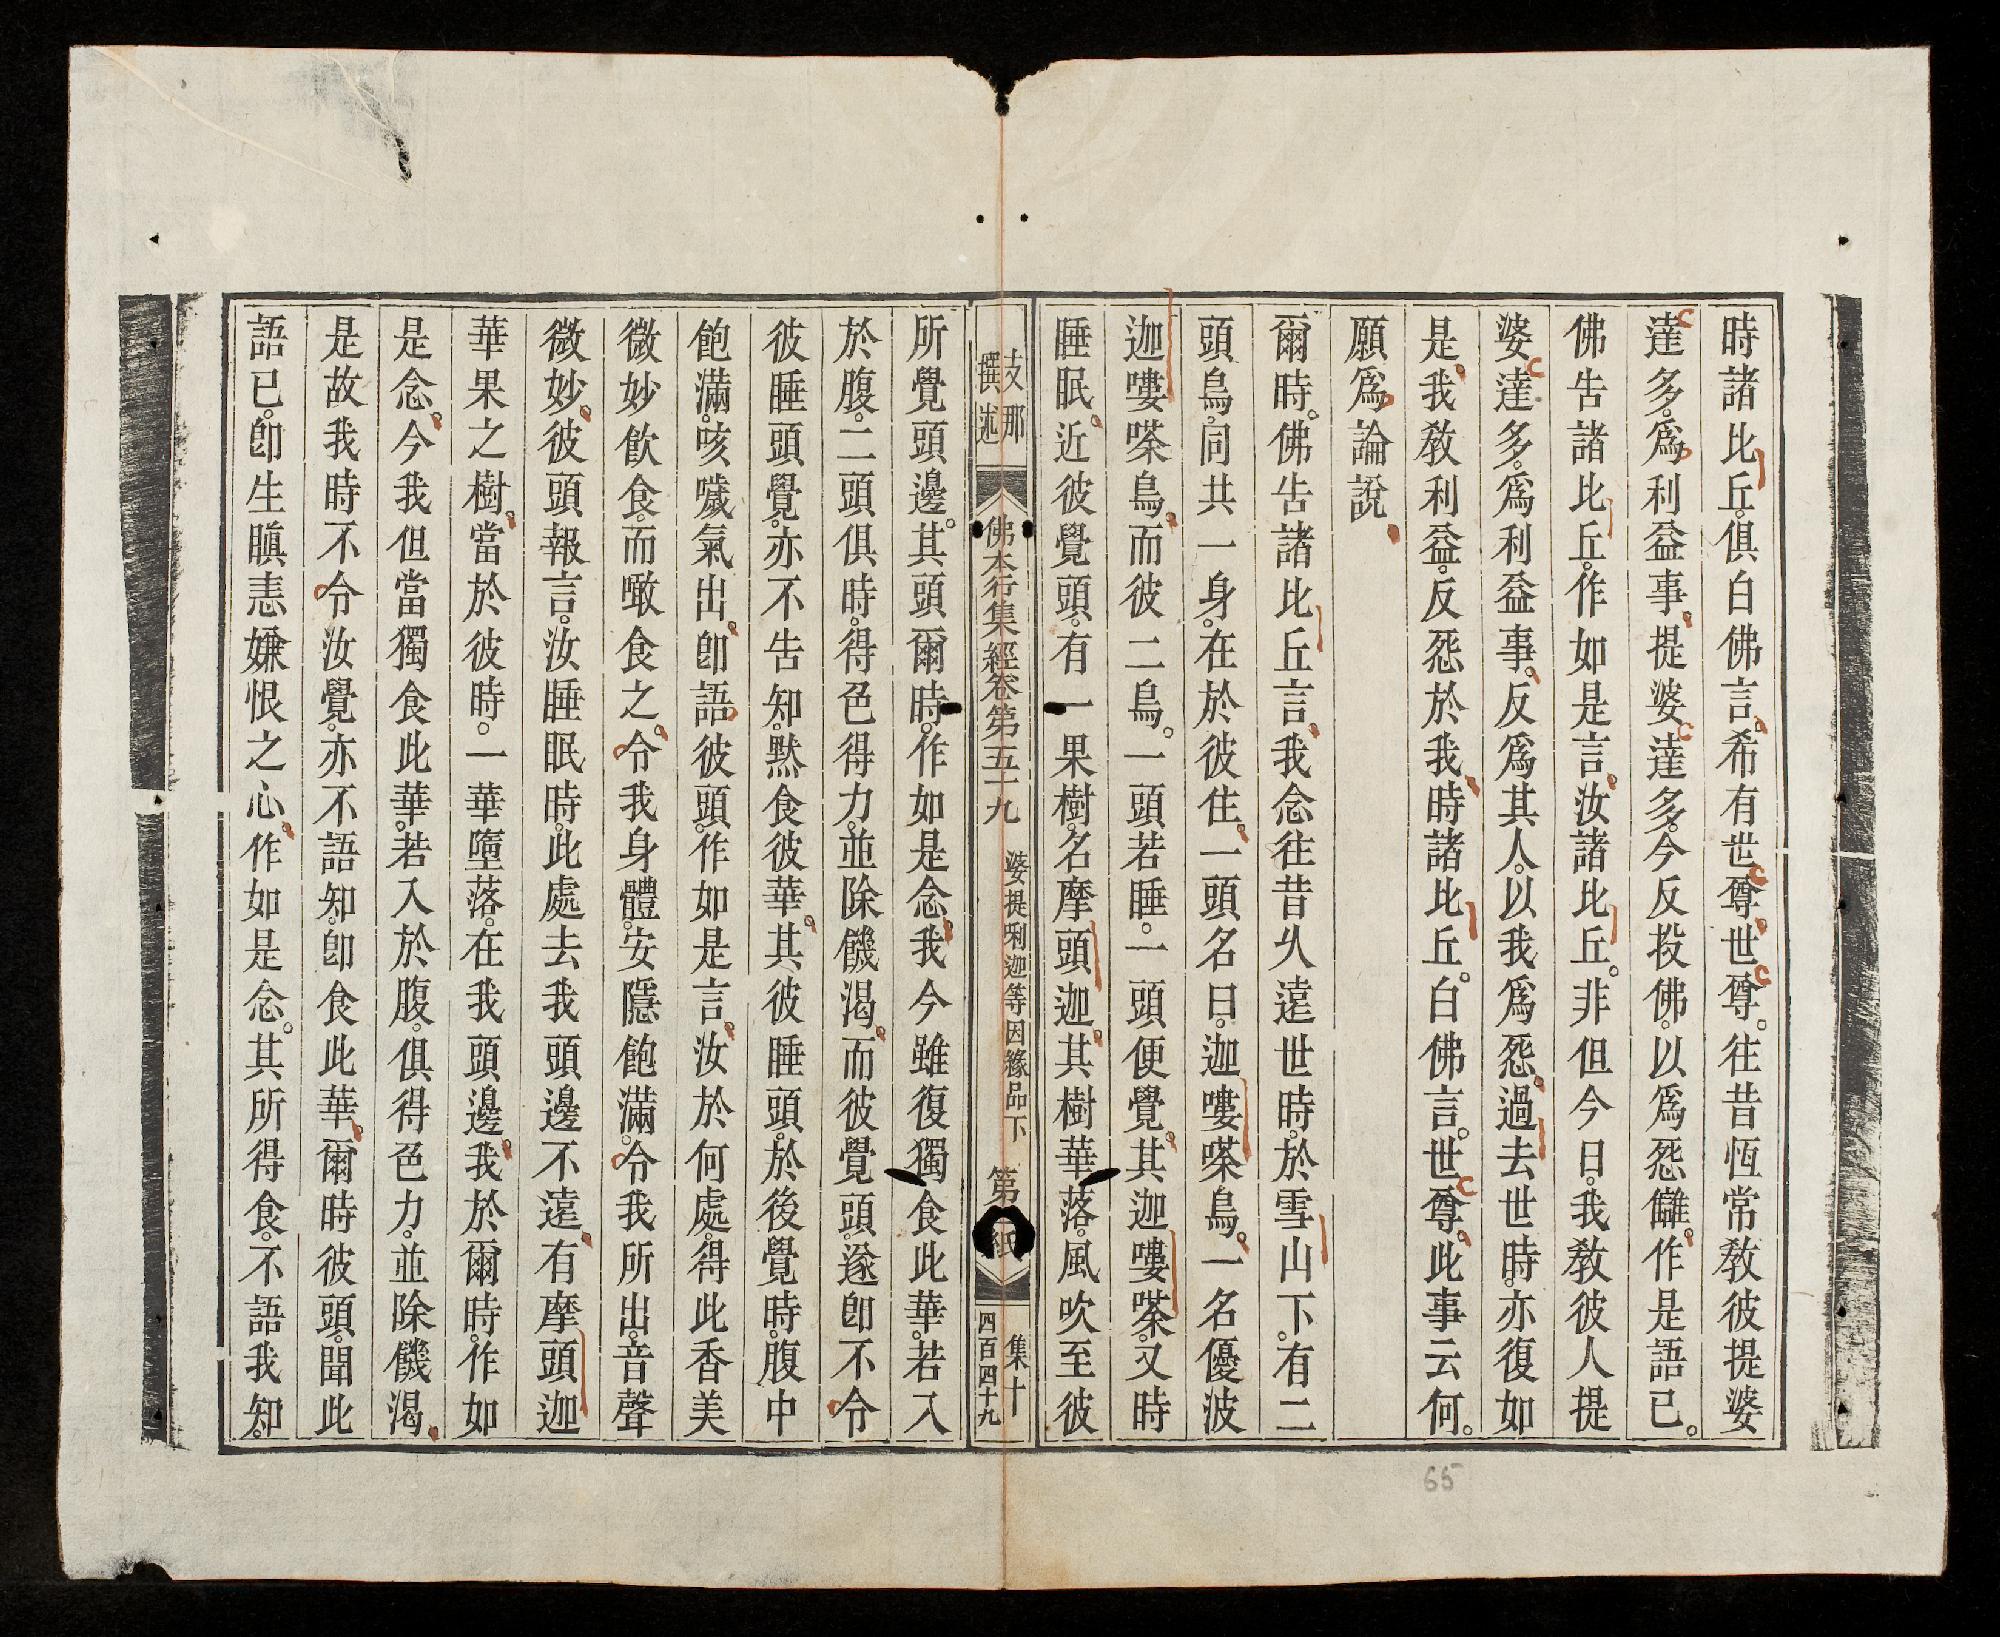 時諸比丘。俱白佛言。希有世尊。世尊。往昔恆常教彼提婆
達多。爲利益事。提婆達多。今反投佛。以爲怨讎。作是語已。
佛告諸比丘。作如是言。汝諸比丘。非但今日。我教彼人提
婆達多。爲利益事。反爲其人。以我爲怨。過去世時。亦復如
是。我教利益。反怨於我。時諸比丘。白佛言。世尊。此事云何。
願爲論說。
爾時。佛告諸比丘言。我念往昔久遠世時。於雪山下。有二
頭鳥。同共一身。在於彼住。一頭名曰。迦嘍嗏鳥。一名優波
迦嘍嗏鳥。而彼二鳥。一頭若睡。一頭便覺。其迦嘍嗏。又時
睡眠。近彼覺頭。有一果樹。名摩頭迦。其樹華落。風吹至彼
支那
撰述
佛本行集經卷第五十九
婆提唎迦等因緣品下
第
紙
集十
四百四十九
所覺頭邊。其頭爾時。作如是念。我今雖復獨食此華。若入
於腹。二頭俱時。得色得力。並除饑渴。而彼覺頭。遂即不令
彼睡頭覺。亦不告知。黙食彼華。其彼睡頭。於後覺時。腹中
飽滿。咳噦氣出。即語彼頭。作如是言。汝於何處。得此香美
微妙飲食。而噉食之。令我身體。安隱飽滿。令我所出。音聲
微妙。彼頭報言。汝睡眠時。此處去我頭邊不遠。有摩頭迦
華果之樹。當於彼時。一華墮落。在我頭邊。我於爾時。作如
是念。今我但當獨食此華。若入於腹。俱得色力。並除饑渴。
是故我時不令汝覺。亦不語知。即食此華。爾時彼頭。聞此
語已。即生瞋恚嫌恨之心。作如是念。其所得食。不語我知。
65